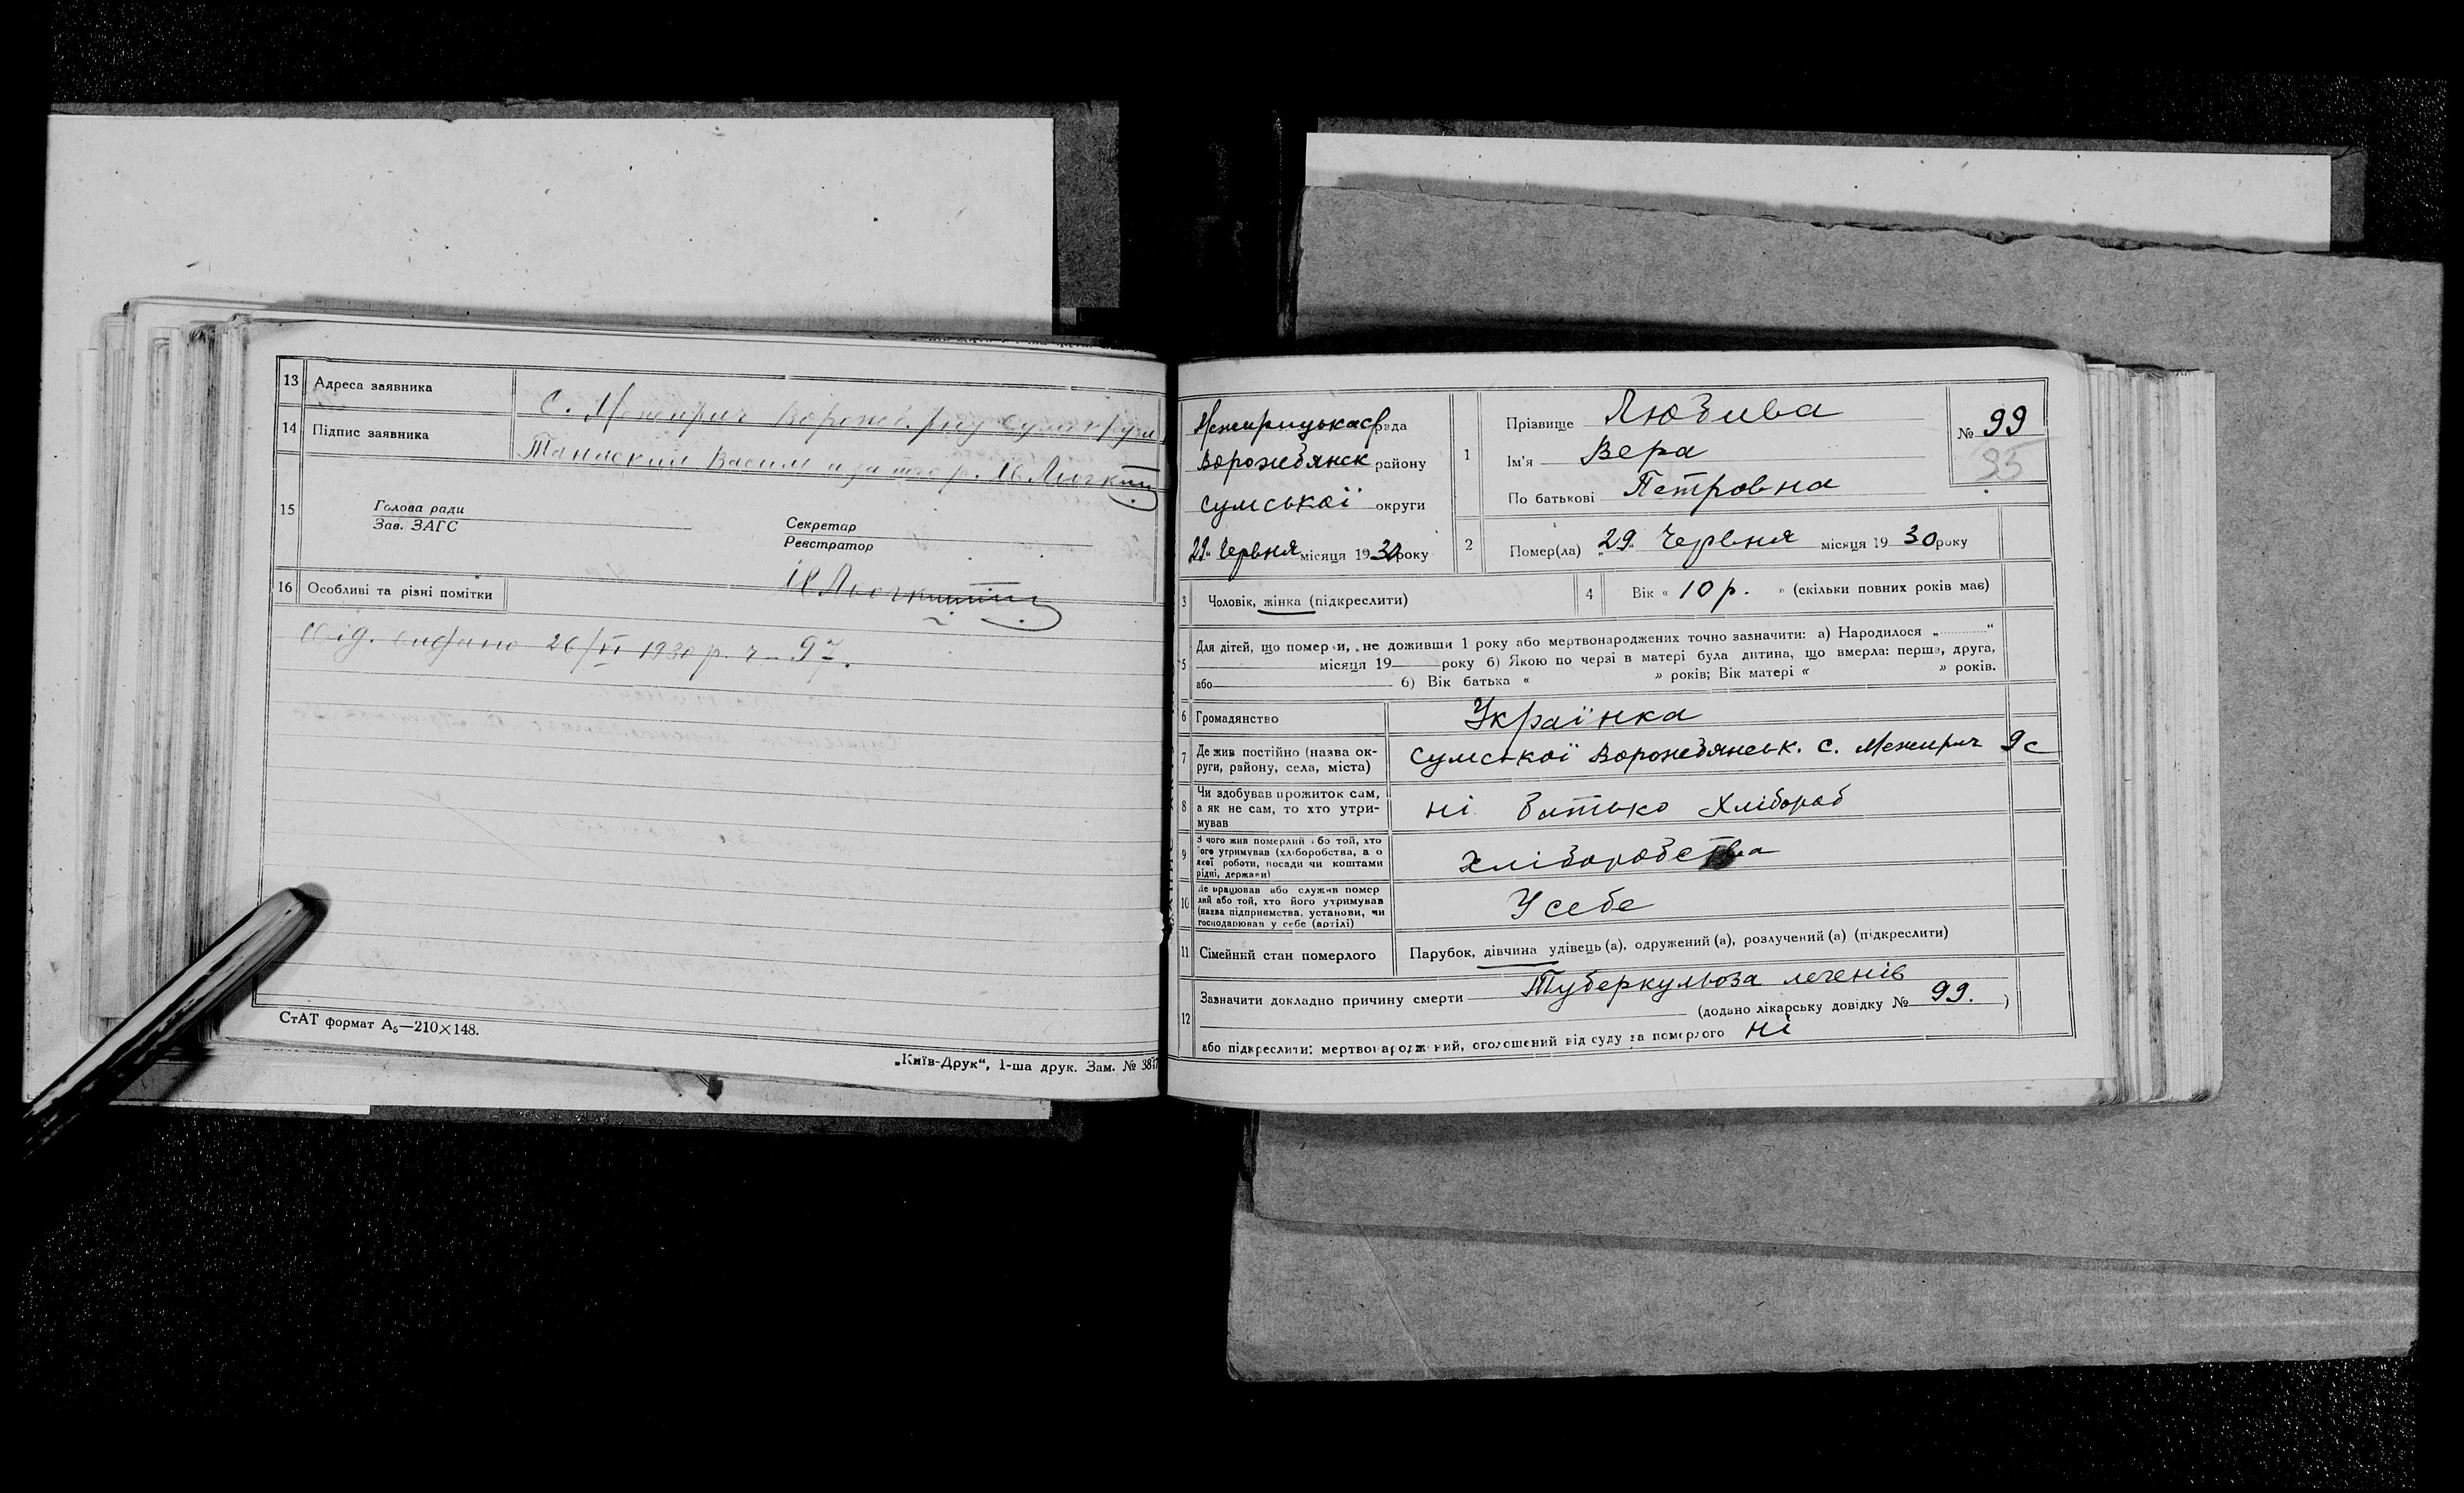 13 Адреса заявника
С. Межирич Ворожб.
14 Підпис заявника
Василь
15
Голова ради
Зав. ЗАГС
Секретар
Реєстратор
16 Особливі та різні помітки
видано 26/VI 1930 р. ч. 97.
СтАТ формат А5—210×148.
„Київ-Друк“, 1-ша друк. Зам. № 387
Межирицька с/рада
Ворожбянськ району
Сумської округи
29 Червня місяця 1930 року
1 Прізвище Любива
Ім'я Вера
По батькові Петровна
№ 99
95
2 Помер(ла) „29“ Червня місяця 1930 року
3 Чоловік, жінка (підкреслити)
4 Вік « 10 р. » (скільки повних років має)
5 Для дітей, що померли, не доживши 1 року або мертвонароджених точно зазначити: а) Народилося „ “
місяця 19 року б) Якою по черзі в матері була дитина, що вмерла: перша, друга,
або б) Вік батька « » років; Вік матері « » років.
6 Громадянство Українка
7 Де жив постійно (назва ок-
руги, району, села, міста) Сумської Ворожбянськ. с. Межирич 9 с
8 Чи здобував прожиток сам,
а як не сам, то хто утри-
мував ні батько Хлібороб
9 З чого жив померлий або той, хто
його утримував (хліборобства, а о
якої роботи, посади чи коштами
рідні, держави) Хліборобства
10 Де працював або служив помер
лий або той, хто його утримував
(назва підприємства, установи, чи
господарював у себе (артілі) У себе
11 Сімейний стан померлого Парубок, дівчина удівець (а), одружений (а), розлучений (а) (підкреслити)
12 Зазначити докладно причину смерти Туберкульоза легенів
(додано лікарську довідку № 99. )
або підкреслити: мертвонароджений, оголошений від суду за померлого ні